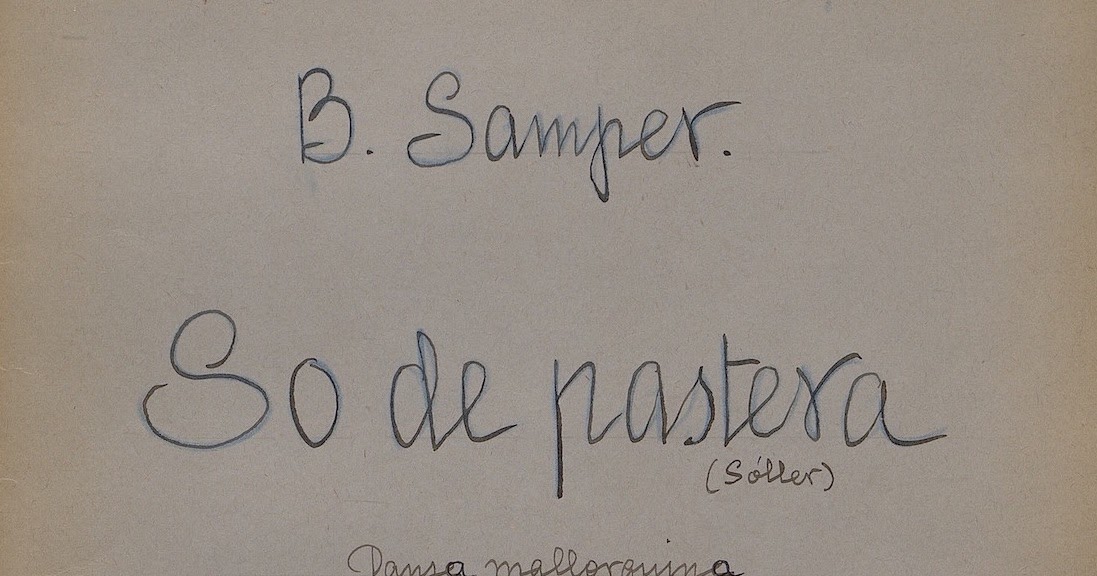 B. Samper.
So de pastera
(Sóller)
Dansa mallorquina